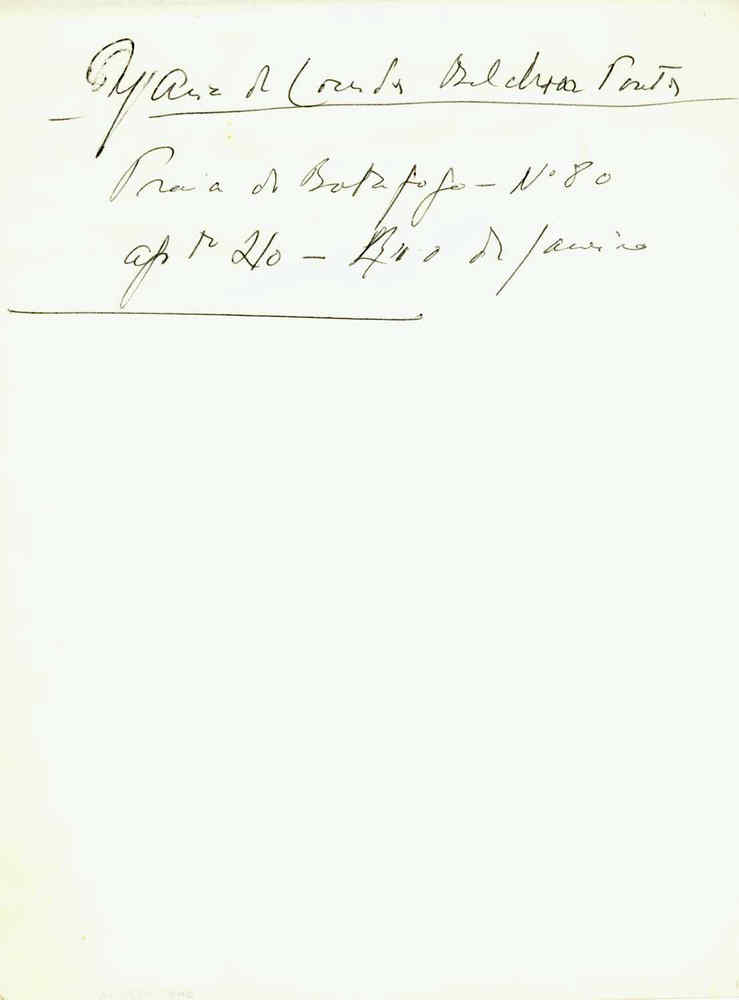 Maria de Lourdes Belchior Pontes
Praia de Botafogo - Nº 80
aptº 210 - Rio de Janeiro